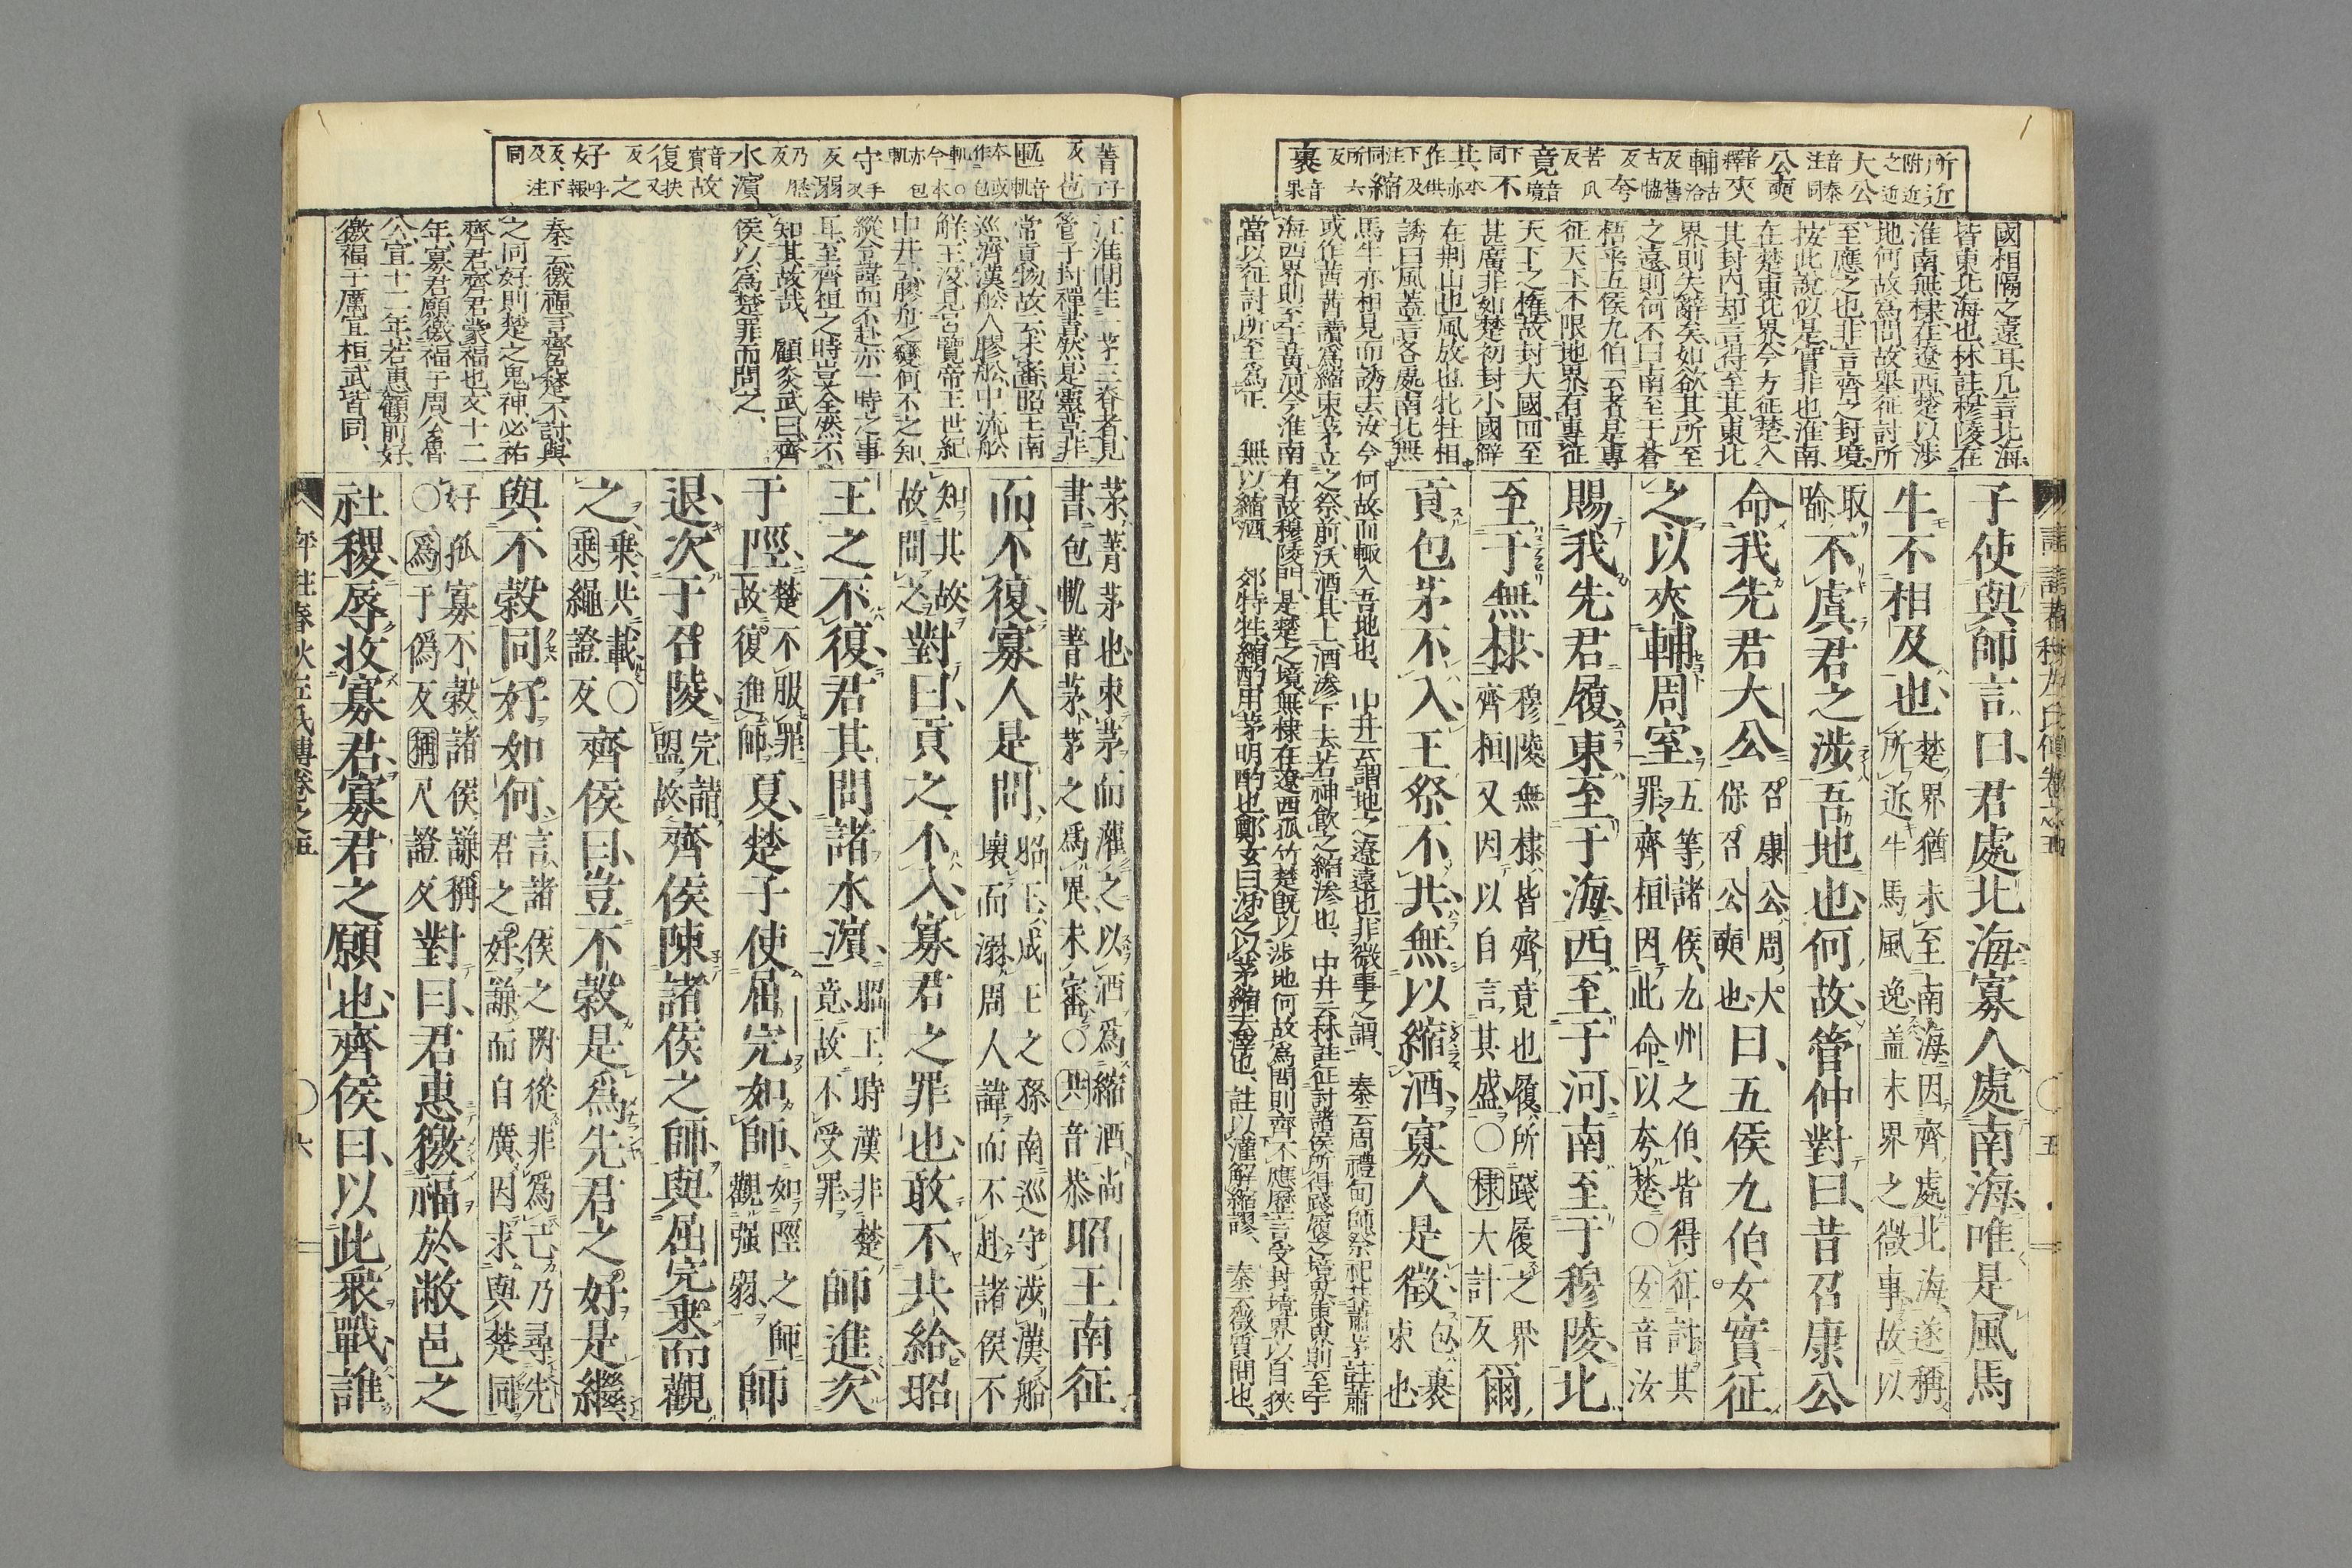 所近附近之近 大公音泰注同 公奭音釋 夾輔古洽反舊古協反 夸苦瓜反 竟音境下同 不共本亦作供下及注同 縮所六反 裹音果
國相隔之遠耳凡言北海
皆東北海也林註穆陵在
淮南無棣在遼西楚以涉
地何故為問故舉征討所
至應之也非言齊之封境
按此說似是實非也淮南
在楚東北界今方征楚入
其封內却言得至其東北
界則失辭矣如欲其所至
之遠則何不曰南至于蒼
梧乎五侯九伯云者是專
征天下不限地界有專征
天下之權故封大國四至
甚廣非如楚初封小國鮮
在荆山也風放也牝牡相
誘曰風蓋言各處南北無
馬牛亦相見而誘去汝今何故而輙入吾地也 中井云謂地之遼遠也非微事之謂 秦云周禮甸師祭祀共蕭茅註蕭
或作茜茜讀為縮束茅立之祭前沃酒其上酒滲下去若神飲之縮滲也 中井云林註征討諸侯所得踐履之境界東則至于
海西界則至于黃河今淮南有故穆陵門是楚之境無棣在遼西孤竹楚既以涉地何故為問則齊不應歷言受封境界以自狹
當以征討所至為正 無以縮酒 郊特牲縮酌用茅明酌也鄭玄曰泲之以茅縮去滓也註以灌解縮謬 秦云徵質問也
子使與師言曰君處北海寡人處南海唯是風馬
牛不相及也楚界猶未至南海因齊處北海遂稱所近牛馬風逸盖末界之微事故以
取喻不虞君之涉吾地也何故管仲對曰昔召康公
命我先君大公召康公周大保召公奭也曰五侯九伯女實征
之以夾輔周室五等諸侯九州之伯皆得征討其罪齊桓因此命以夸楚〇女音汝
賜我先君履東至于海西至于河南至于穆陵北
至于無棣穆陵無棣皆齊竟也履所踐履之界齊桓又因以自言其盛〇棣大計反爾
貢包茅不入王祭不共無以縮酒寡人是徵包裹束也
評註春秋左氏傳卷之五
〇五
菁子反 匭音軌本或作軌包一〇今本亦包軌 守手又反 溺乃歷反 水濱音賓 故復扶又反 之好呼報反下及注同
江淮間生一茅三脊者見
管子封禪書然是靈草非
常貢物故云未審昭王南
巡濟漢舩人膠舩中流舩
解王沒見呂覽帝王世紀
中井云膠舟之變何不之知
縱令諱而不赴亦一時之事
耳至齊桓之時豈全然不
知其故哉 顧炎武曰齊
侯以為楚罪而問之
秦云徼福言齊免楚不討與
之同好則楚之鬼神必祐
齊君齊君蒙福也文十二
年寡君願徼福于周公魯
公宣十二年若惠顧前好
徼福于厲宣桓武皆同
茅菁茅也束茅而灌之以酒為縮酒尚書包軌菁茅茅之為異未審〇共音恭昭王南征
而不復寡人是問昭王成王之孫南巡守涉漢船壞而溺周人諱而不赴諸侯不
知其故故問之對曰貢之不入寡君之罪也敢不共給昭
王之不復君其問諸水濱昭王時漢非楚竟故不受罪師進次
于陘楚不服罪故復進師夏楚子使屈完如師如陘之師觀强弱師
退次于召陵完請盟故齊侯陳諸侯之師與屈完乘而觀
之乘共載〇乘繩證反齊侯曰豈不穀是為先君之好是繼
與不穀同好如何言諸侯之附從非為己乃尋先君之好謙而自廣因求與楚同
好孤寡不穀諸侯謙稱〇為于偽反稱尺證反對曰君惠徼福於敝邑之
社稷辱收寡君寡君之願也齊侯曰以此衆戰誰
評註春秋左氏傳卷之五
〇六